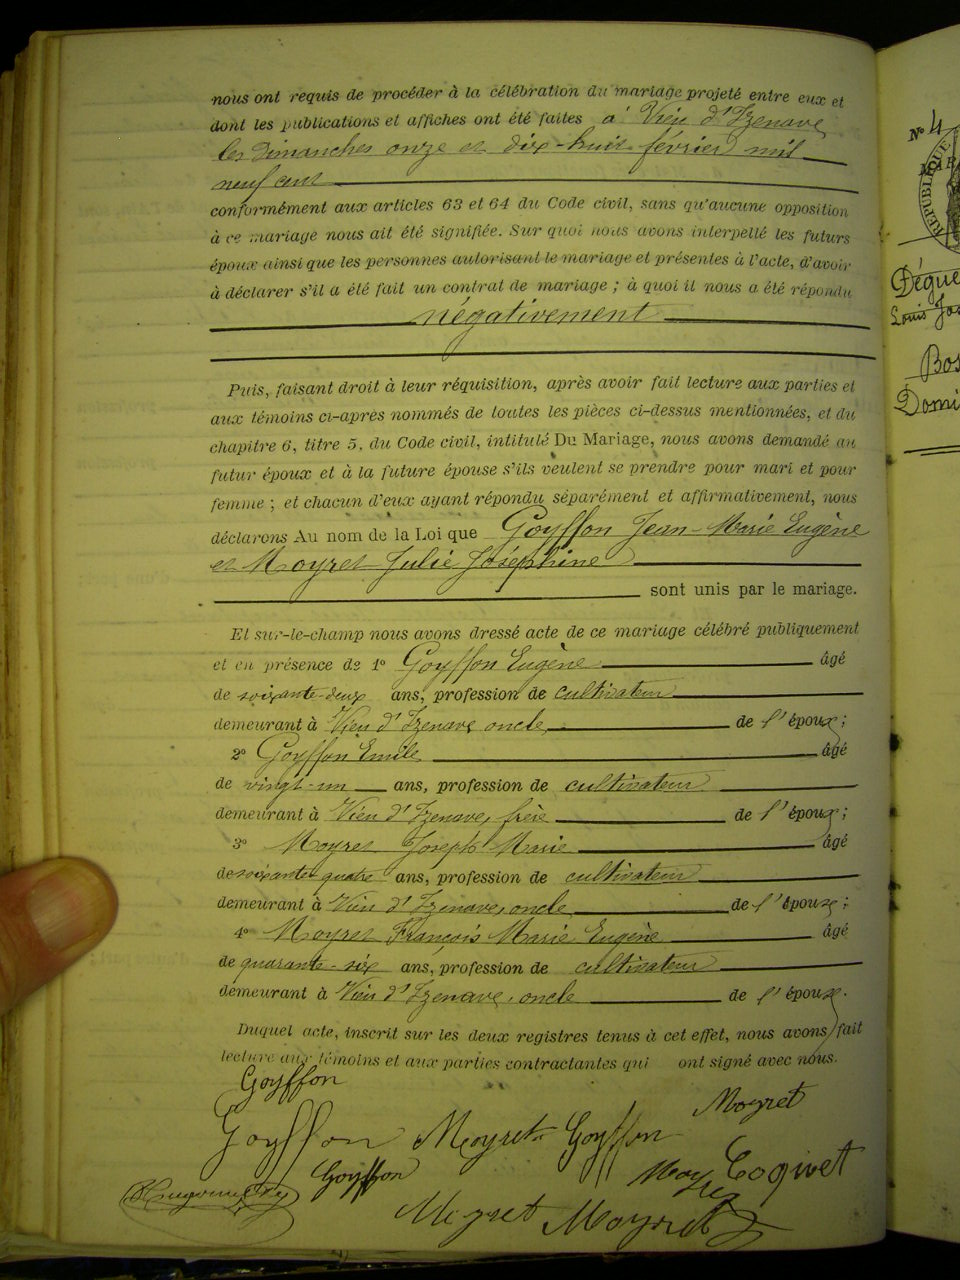 nous ont requis de procéder à la célébration du mariage projeté entre eux et
dont les publications et affiches ont été faites à Vieu d'Izenave
les Dimanches onze et dix-huit février mil
neuf cent
conformément aux articles 63 et 64 du Code civil, sans qu'aucune opposition
à ce mariage nous ait été signifiée. Sur quoi nous avons interpellé les futurs
époux ainsi que les personnes autorisant le mariage et présentes à l'acte, d'avoir
à déclarer s'il a été fait un contrat de mariage ; à quoi il nous a été répondu
négativement
Puis, faisant droit à leur réquisition, après avoir fait lecture aux parties et
aux témoins ci-après nommés de toutes les pièces ci-dessus mentionnées, et du
chapitre 6, titre 5, du Code civil, intitulé Du Mariage, nous avons demandé au
futur époux et à la future épouse s'ils veulent se prendre pour mari et pour
femme ; et chacun d'eux ayant répondu séparément et affirmativement, nous
déclarons Au nom de la Loi que Goyffon Jean-Marie Eugène
et Moyret Julie Joséphine
sont unis par le mariage.
Et sur-le-champ nous avons dressé acte de ce mariage célébré publiquement
et en présence de 1° Goyffon Eugène âgé
de soixante-deux ans, profession de cultivateur
demeurant à Vieu d'Izenave oncle de l'époux ;
2° Goyffon Emile âgé
de vingt-un ans, profession de cultivateur
demeurant à Vieu d'Izenave, frère de l'époux ;
3° Moyret Joseph Marie âgé
de soixante-quatre ans, profession de cultivateur
demeurant à Vieu d'Izenave, oncle de l'épouse ;
4° Moyret François Marie Eugène âgé
de quarante-six ans, profession de cultivateur
demeurant à Vieu d'Izenave, oncle de l'épouse.
Duquel acte, inscrit sur les deux registres tenus à cet effet, nous avons fait
lecture aux témoins et aux parties contractantes qui ont signé avec nous.
Goyffon
Moyret
Goyffon Moyret Goyffon
Goyffon Coqivet
Moyret Moyret
N° 4
RÉPUBLIQUE
Louis